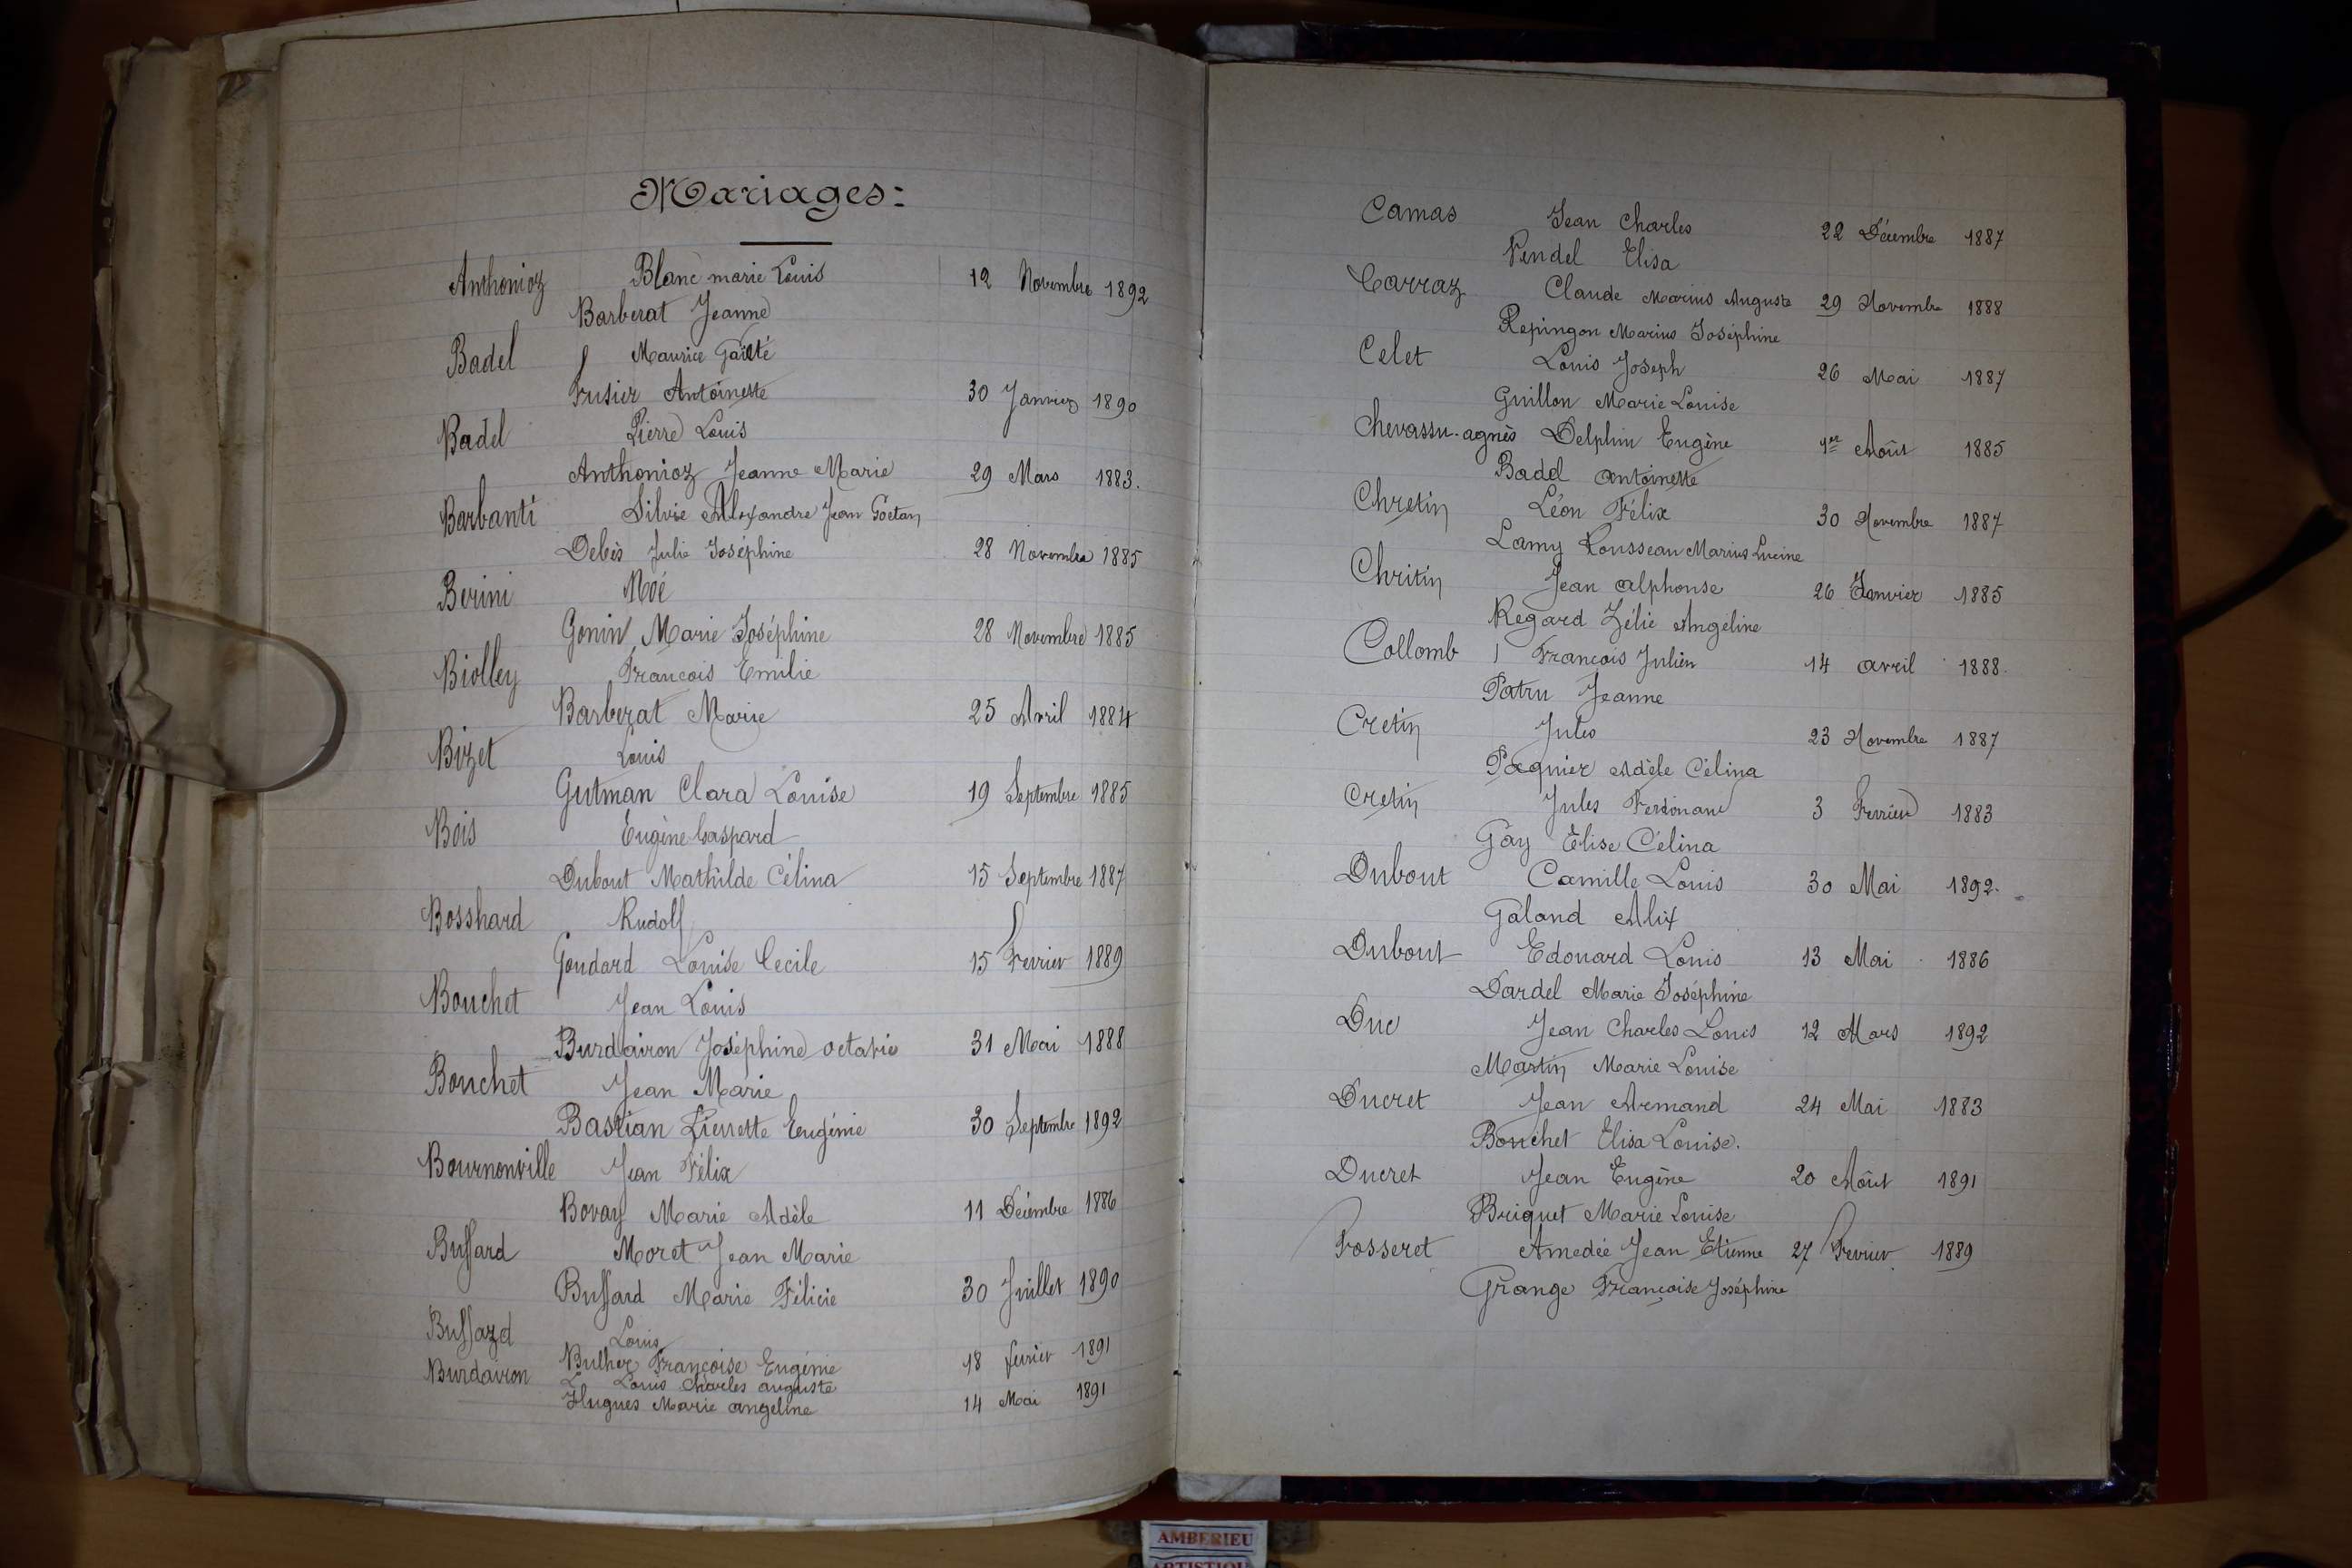 Mariages:
Anthonioz Blanc marie Louis 12 Novembre 1892
Barberat Jeanne
Badel Maurice Gaité
Fusier Antoinette 30 Janvier 1890
Badel Pierre Louis
Anthonioz Jeanne Marie 29 Mars 1883.
Barbanti Silvie Alexandre Jean Goetan
Debès Julie Joséphine 28 Novembre 1885
Berini Noé
Gonin Marie Joséphine 28 Novembre 1885
Biolley Francois Emilie
Barberat Marie 25 Avril 1884
Bizet Louis
Gutman Clara Louise 19 Septembre 1885
Bois Eugène Gaspard
Dubout Mathilde Célina 15 Septembre 1887
Bosshard Rudolf
Goudard Louise Cecile 15 Fevrier 1889
Bouchet Jean Louis
Burdairon Joséphine octavie 31 Mai 1888
Bouchet Jean Marie
Bastian Pierrette Eugénie 30 Septembre 1892
Bournonville Jean Félix
Bovay Marie Adèle 11 Décembre 1886
Buffard Moret Jean Marie
Buffard Marie Félicie 30 Juillet 1890
Buffard Louis
Bulher Françoise Eugénie 18 fevrier 1891
Burdairon Louis Charles auguste
Hugues Marie angeline 14 Mai 1891
Camas Jean Charles 22 Décembre 1887
Vendel Elisa
Carraz Claude Marius Auguste 29 Novembre 1888
Repingon Marius Joséphine
Celet Louis Joseph 26 Mai 1887
Guillon Marie Louise
Chevassu-agnès Delphin Eugène 1er Août 1885
Badel antoinette
Chretin Léon Félix 30 Novembre 1887
Lamy Rousseau Marius Lucine
Chritin Jean alphonse 26 Janvier 1885
Regard Zélie Angeline
Collomb François Julien 14 avril 1888
Patru Jeanne
Cretin Jules 23 Novembre 1887
Pagnier Adèle Célina
Cretin Jules Ferdinand 3 Fevrier 1883
Gay Elise Célina
Dubout Camille Louis 30 Mai 1892.
Galand Alix
Dubout Edouard Louis 13 Mai 1886
Dardel Marie Joséphine
Duc Jean Charles Louis 12 Mars 1892
Martin Marie Louise
Ducret Jean Armand 24 Mai 1883
Bouchet Elisa Louise.
Ducret Jean Eugène 20 Août 1891
Briquet Marie Louise
Fosseret Amedée Jean Etienne 27 Fevrier 1889
Grange Françoise Joséphine
AMBERIEU